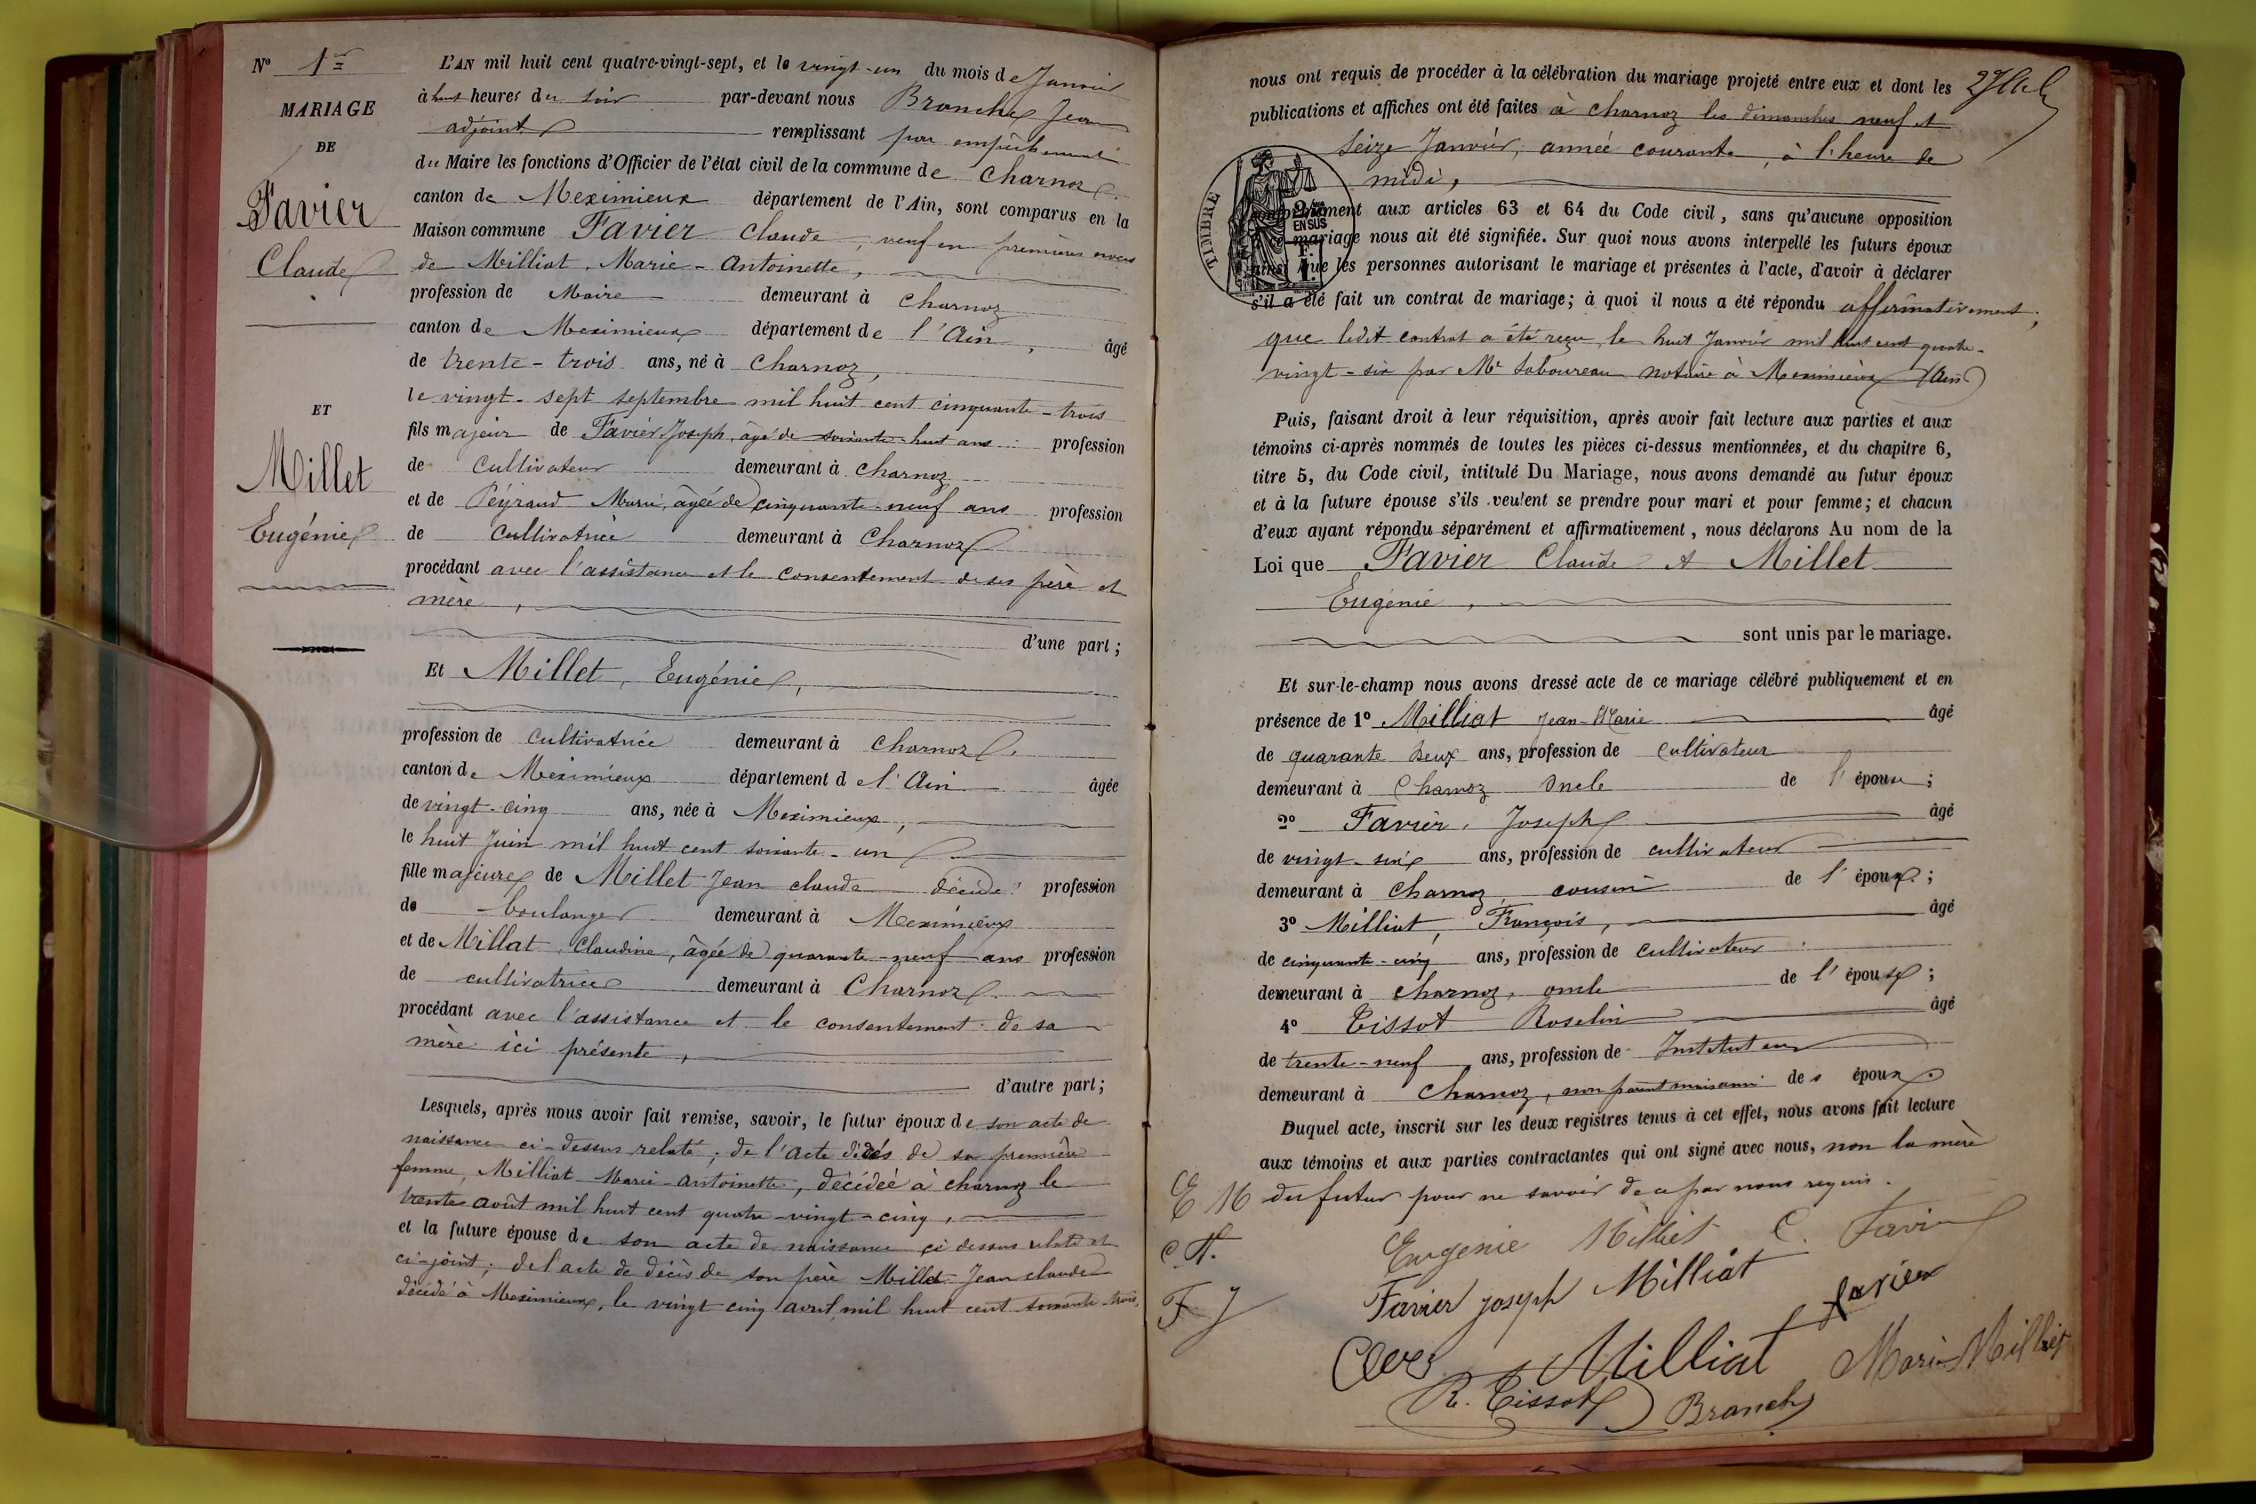 N° 1er
MARIAGE
DE
Favier
Claude
ET
Millet
Eugénie
L'AN mil huit cent quatre-vingt-sept, et le vingt-un du mois de Janvier
à huit heures du soir par-devant nous Branche Jean
adjoint remplissant par empêchement
du Maire les fonctions d'Officier de l'état civil de la commune de Charnoz
canton de Meximieux département de l'Ain, sont comparus en la
Maison commune Favier Claude, veuf en premières noces
de Milliat Marie-Antoinette,
profession de Maire demeurant à Charnoz
canton de Meximieux département de l'Ain, âgé
de trente-trois ans, né à Charnoz,
le vingt-sept septembre mil huit cent cinquante-trois
fils majeur de Favier Joseph, âgé de soixante-huit ans profession
de cultivateur demeurant à Charnoz
et de Péyraud Marie, âgée de cinquante-neuf ans profession
de cultivatrice demeurant à Charnoz
procédant avec l'assistance et le consentement de ses père et
mère,
d'une part;
Et Millet, Eugénie,
profession de cultivatrice demeurant à Charnoz
canton de Meximieux département de l'Ain âgée
de vingt-cinq ans, née à Meximieux,
le huit Juin mil huit cent soixante-un
fille majeure de Millet Jean Claude décédé profession
de boulanger demeurant à Meximieux
et de Millat Claudine, âgée de quarante-neuf ans profession
de cultivatrice demeurant à Charnoz
procédant avec l'assistance et le consentement de sa
mère ici présente,
d'autre part;
Lesquels, après nous avoir fait remise, savoir, le futur époux de son acte de
naissance ci-dessus relaté; de l'acte décès de sa première
femme, Milliat Marie-Antoinette, décédée à Charnoz le
trente août mil huit cent quatre-vingt-cinq,
et la future épouse de son acte de naissance ci dessus relaté et
ci-joint; de l'acte de décès de son père Millet Jean Claude
décédé à Meximieux, le vingt cinq avril mil huit cent soixante-trois,
nous ont requis de procéder à la célébration du mariage projeté entre eux et dont les
publications et affiches ont été faites à Charnoz les dimanches neuf et
seize Janvier, année courante, à l'heure de
midi,
TIMBRE
2/10es EN SUS
ment aux articles 63 et 64 du Code civil, sans qu'aucune opposition
mariage nous ait été signifiée. Sur quoi nous avons interpellé les futurs époux
ainsi que les personnes autorisant le mariage et présentes à l'acte, d'avoir à déclarer
s'il a été fait un contrat de mariage; à quoi il nous a été répondu affirmativement,
que ledit contrat a été reçu le huit Janvier mil huit cent quatre-
vingt-six par Me Saboureau notaire à Meximieux (Ain)
Puis, faisant droit à leur réquisition, après avoir fait lecture aux parties et aux
témoins ci-après nommés de toutes les pièces ci-dessus mentionnées, et du chapitre 6,
titre 5, du Code civil, intitulé Du Mariage, nous avons demandé au futur époux
et à la future épouse s'ils veulent se prendre pour mari et pour femme; et chacun
d'eux ayant répondu séparément et affirmativement, nous déclarons Au nom de la
Loi que Favier Claude et Millet
Eugénie,
sont unis par le mariage.
Et sur-le-champ nous avons dressé acte de ce mariage célébré publiquement et en
présence de 1° Milliat Jean-Marie âgé
de quarante deux ans, profession de cultivateur
demeurant à Charnoz oncle de l'épouse;
2° Favier, Joseph âgé
de vingt-six ans, profession de cultivateur
demeurant à Charnoz, cousin de l'époux;
3° Milliat, François, âgé
de cinquante-cinq ans, profession de cultivateur
demeurant à Charnoz, oncle de l'épouse;
4° Tissot Roselin âgé
de trente-neuf ans, profession de Instituteur
demeurant à Charnoz, non parent mais ami des époux
Duquel acte, inscrit sur les deux registres tenus à cet effet, nous avons fait lecture
aux témoins et aux parties contractantes qui ont signé avec nous, non la mère
du futur pour ne savoir de ce par nous requis.
E M
C F.
F J
Eugénie Milliet C. Favier
Favier Joseph Milliat Favier
Milliat Marie Milliet
R. Tissot Branche